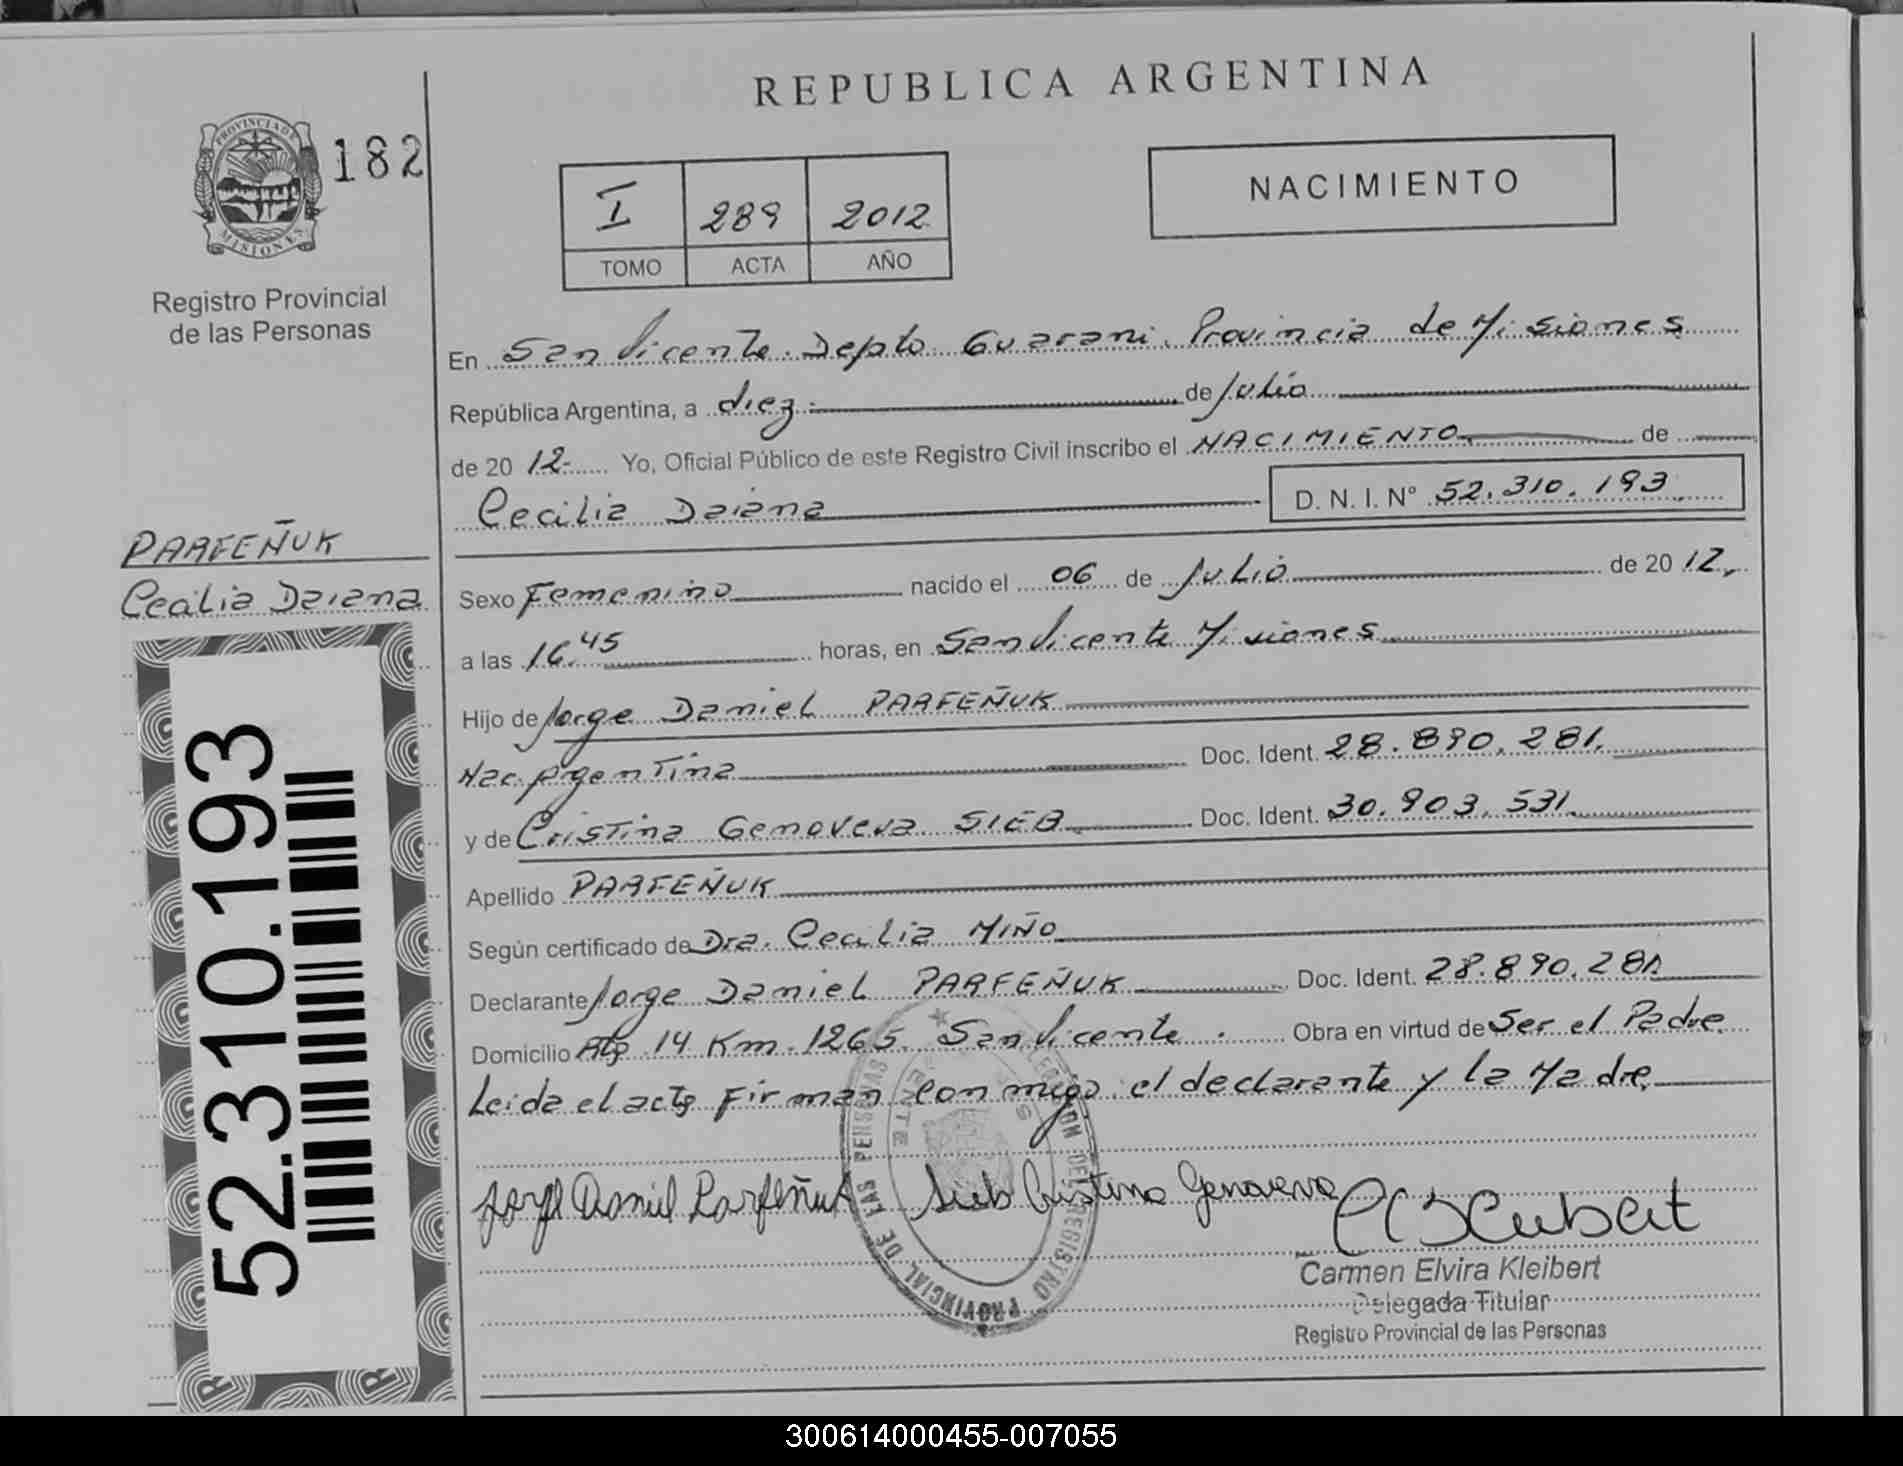 REPUBLICA ARGENTINA
PROVINCIA DE
MISIONES
182
Registro Provincial
de las Personas
I 289 2012
TOMO ACTA AÑO
NACIMIENTO
En San Vicente. Depto Guarani. Provincia de Misiones
República Argentina, a diez de Julio
de 20 12- Yo, Oficial Público de este Registro Civil inscribo el NACIMIENTO de
Cecilia Daiana D. N. I. N° 52.310.193.
PARFEÑUK
Cecilia Daiana
Sexo Femenino nacido el 06 de Julio de 20 12.
a las 16.45 horas, en San Vicente Misiones
Hijo de Jorge Daniel PARFEÑUK
Nac. Argentina Doc. Ident. 28.890.281.
y de Cristina Genoveva SIEB Doc. Ident. 30.903.531.
Apellido PARFEÑUK
Según certificado de Dra. Cecilia MIÑO
Declarante Jorge Daniel PARFEÑUK Doc. Ident. 28.890.281
Domicilio Rta 14 Km. 1265. San Vicente. Obra en virtud de Ser el Padre
Leida el acta Firman con migo el declarante y la Madre.
Jorge Daniel Parfeñuk Sieb Cristina Genoveva
Carmen Elvira Kleibert
Delegada Titular
Registro Provincial de las Personas
REGISTRO PROVINCIAL DE LAS PERSONAS
52.310.193
300614000455-007055